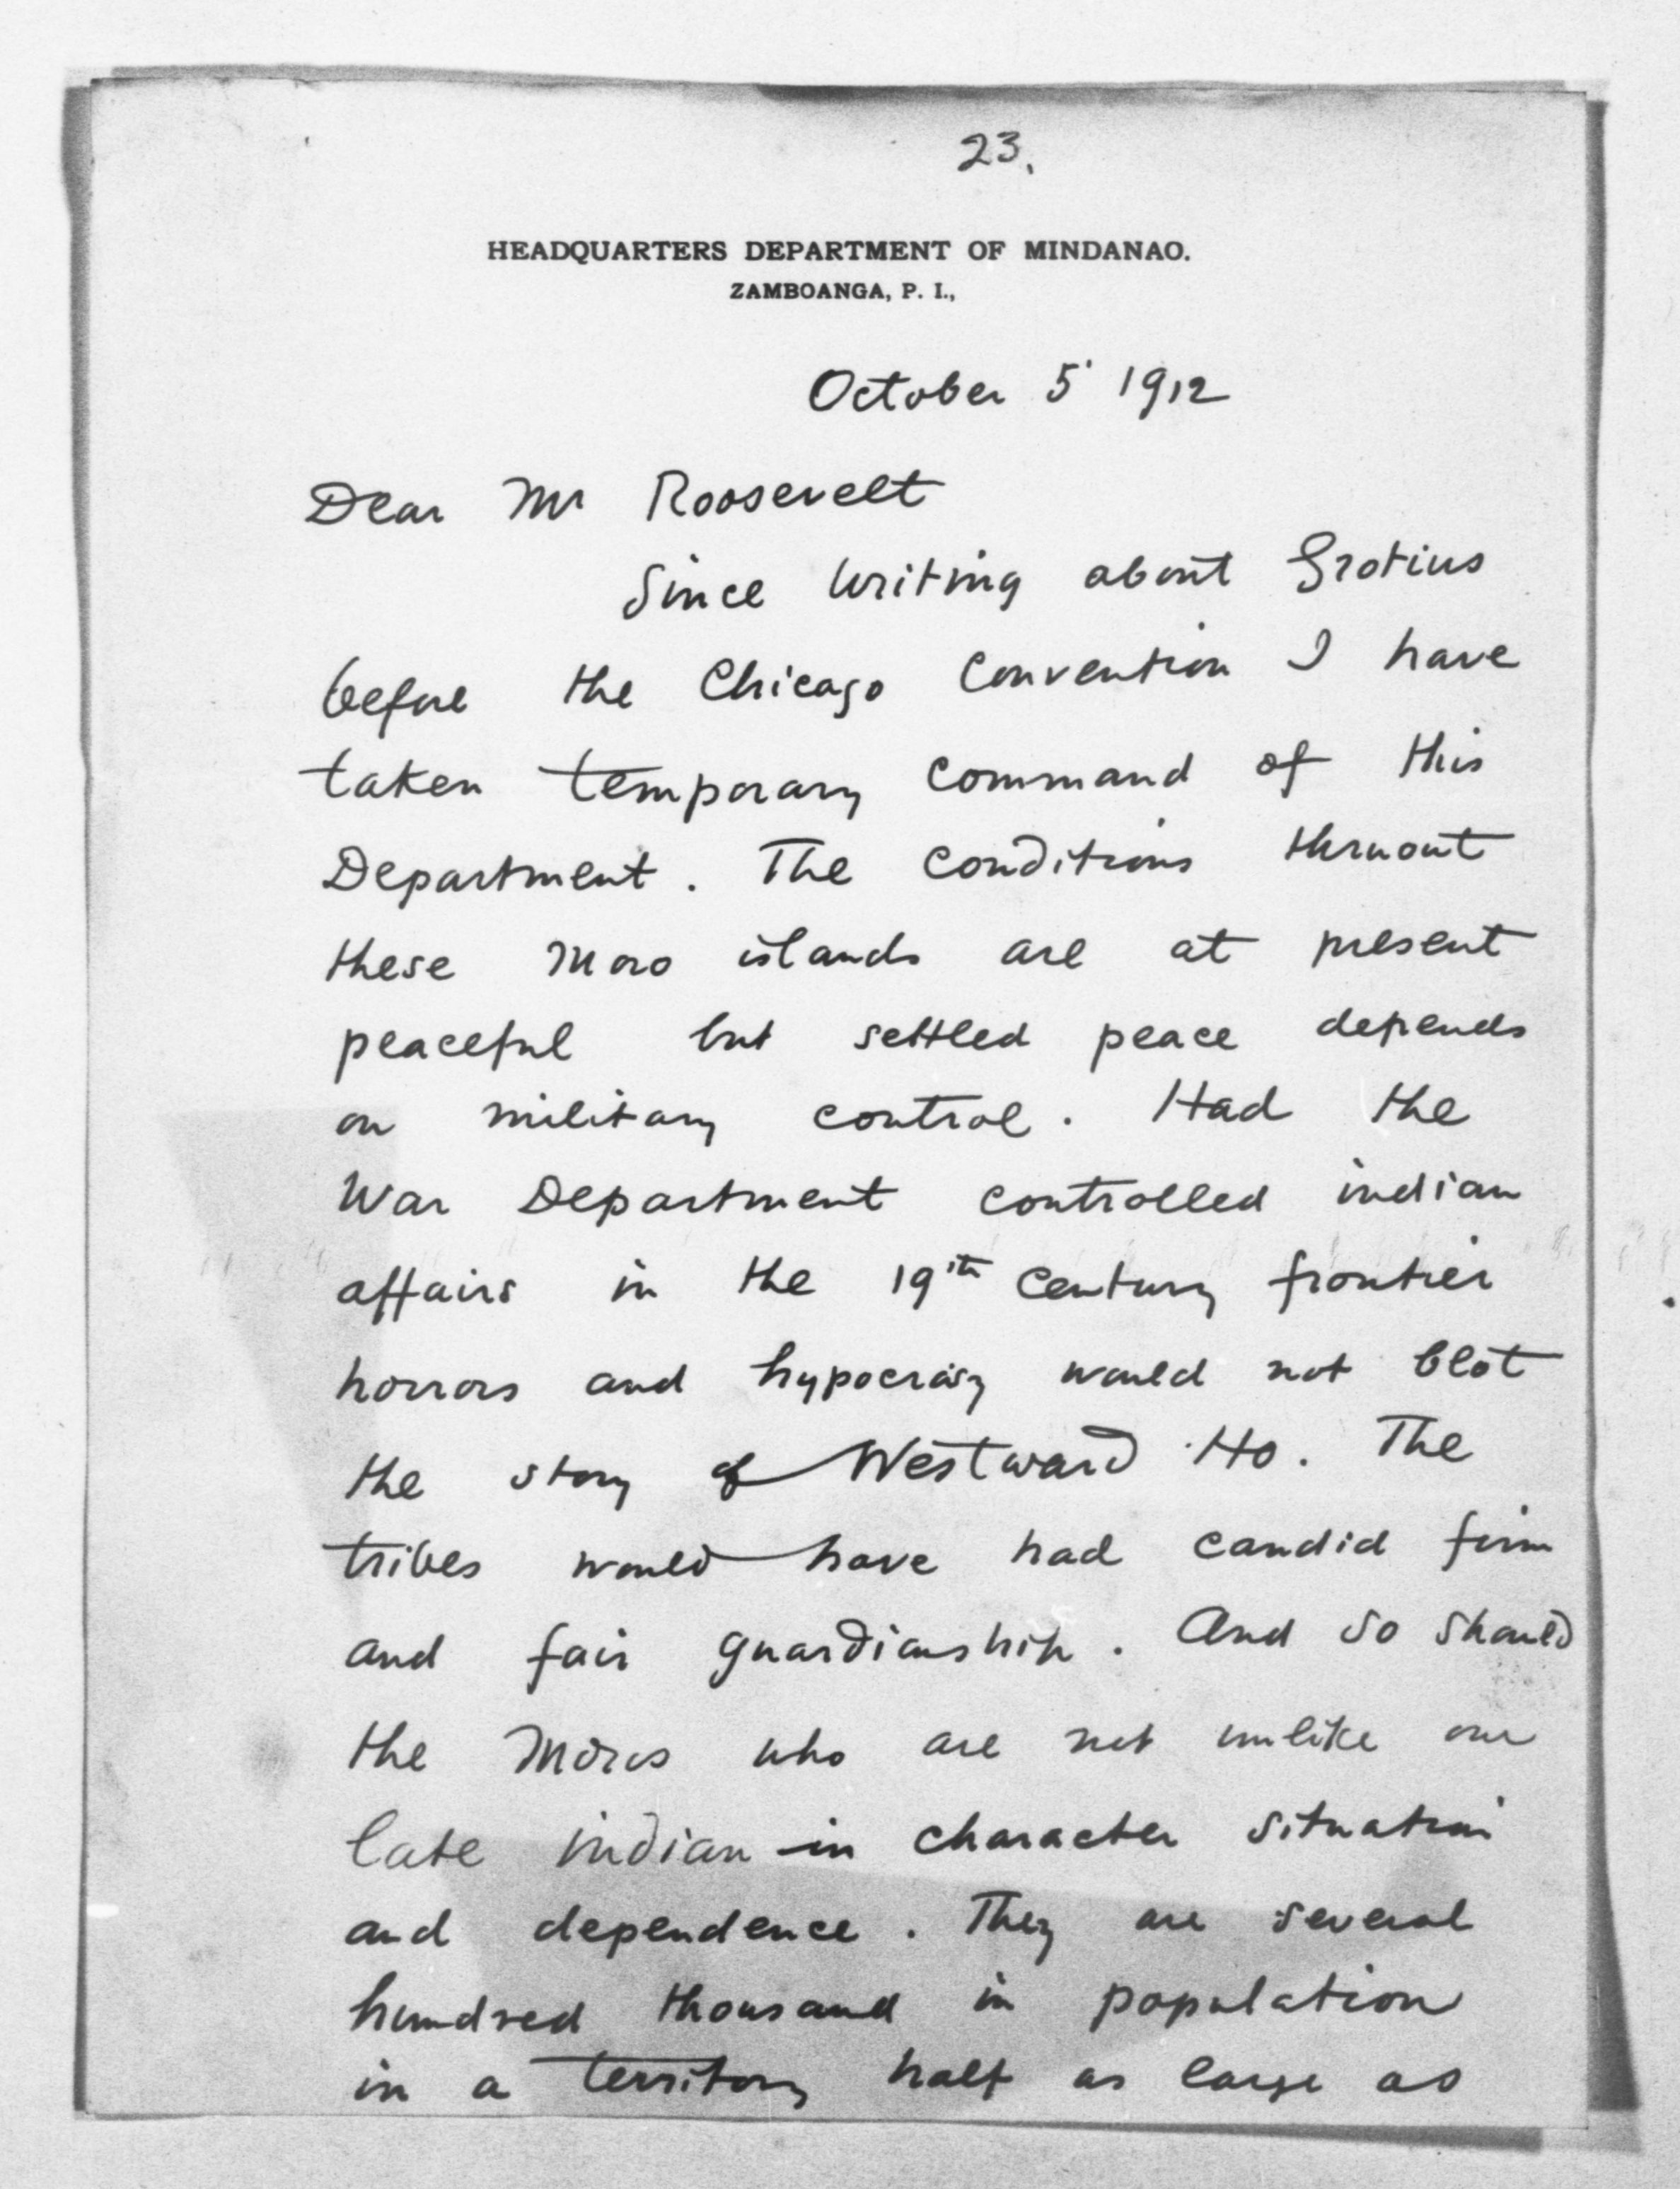 23.
HEADQUARTERS DEPARTMENT OF MINDANAO.
ZAMBOANGA, P. I.,
October 5 1912
Dear Mr Roosevelt
Since writing about Grotius
before the Chicago Convention I have
taken temporary command of this
Department. The conditions thruout
these Moro islands are at present
peaceful but settled peace depends
on military control. Had the
War Department controlled indian
affairs in the 19th Century frontier
horrors and hypocrisy would not blot
the story of Westward Ho. The
tribes would have had candid firm
and fair guardianship. And so should
the Moros who are not unlike our
late indian in character situation
and dependence. They are several
hundred thousand in population
in a territory half as large as